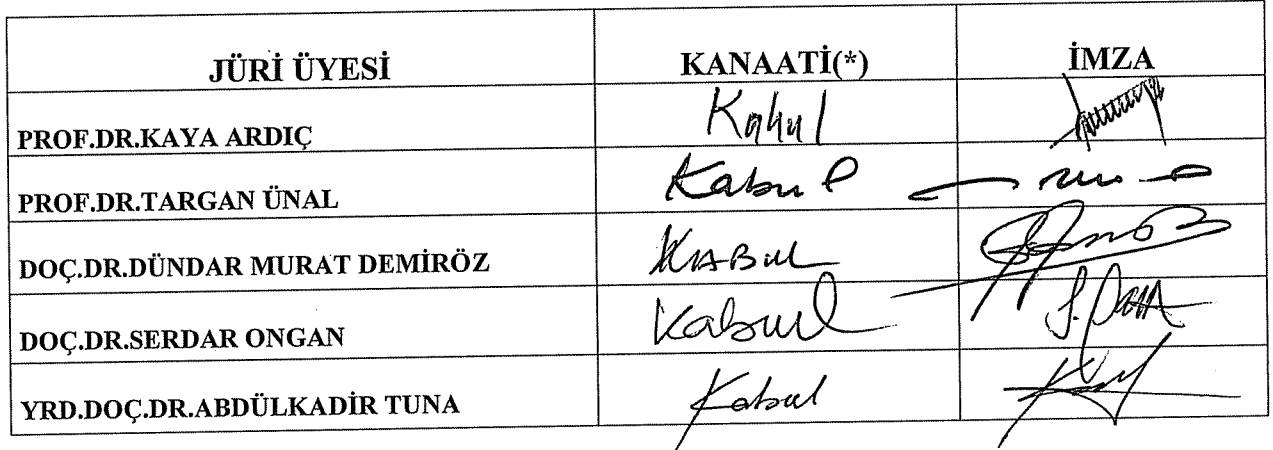 JÜRİ ÜYESİ KANAATİ(*) İMZA
PROF.DR.KAYA ARDIÇ Kabul
PROF.DR.TARGAN ÜNAL Kabul
DOÇ.DR.DÜNDAR MURAT DEMİRÖZ KABUL
DOÇ.DR.SERDAR ONGAN Kabul
YRD.DOÇ.DR.ABDÜLKADİR TUNA Kabul